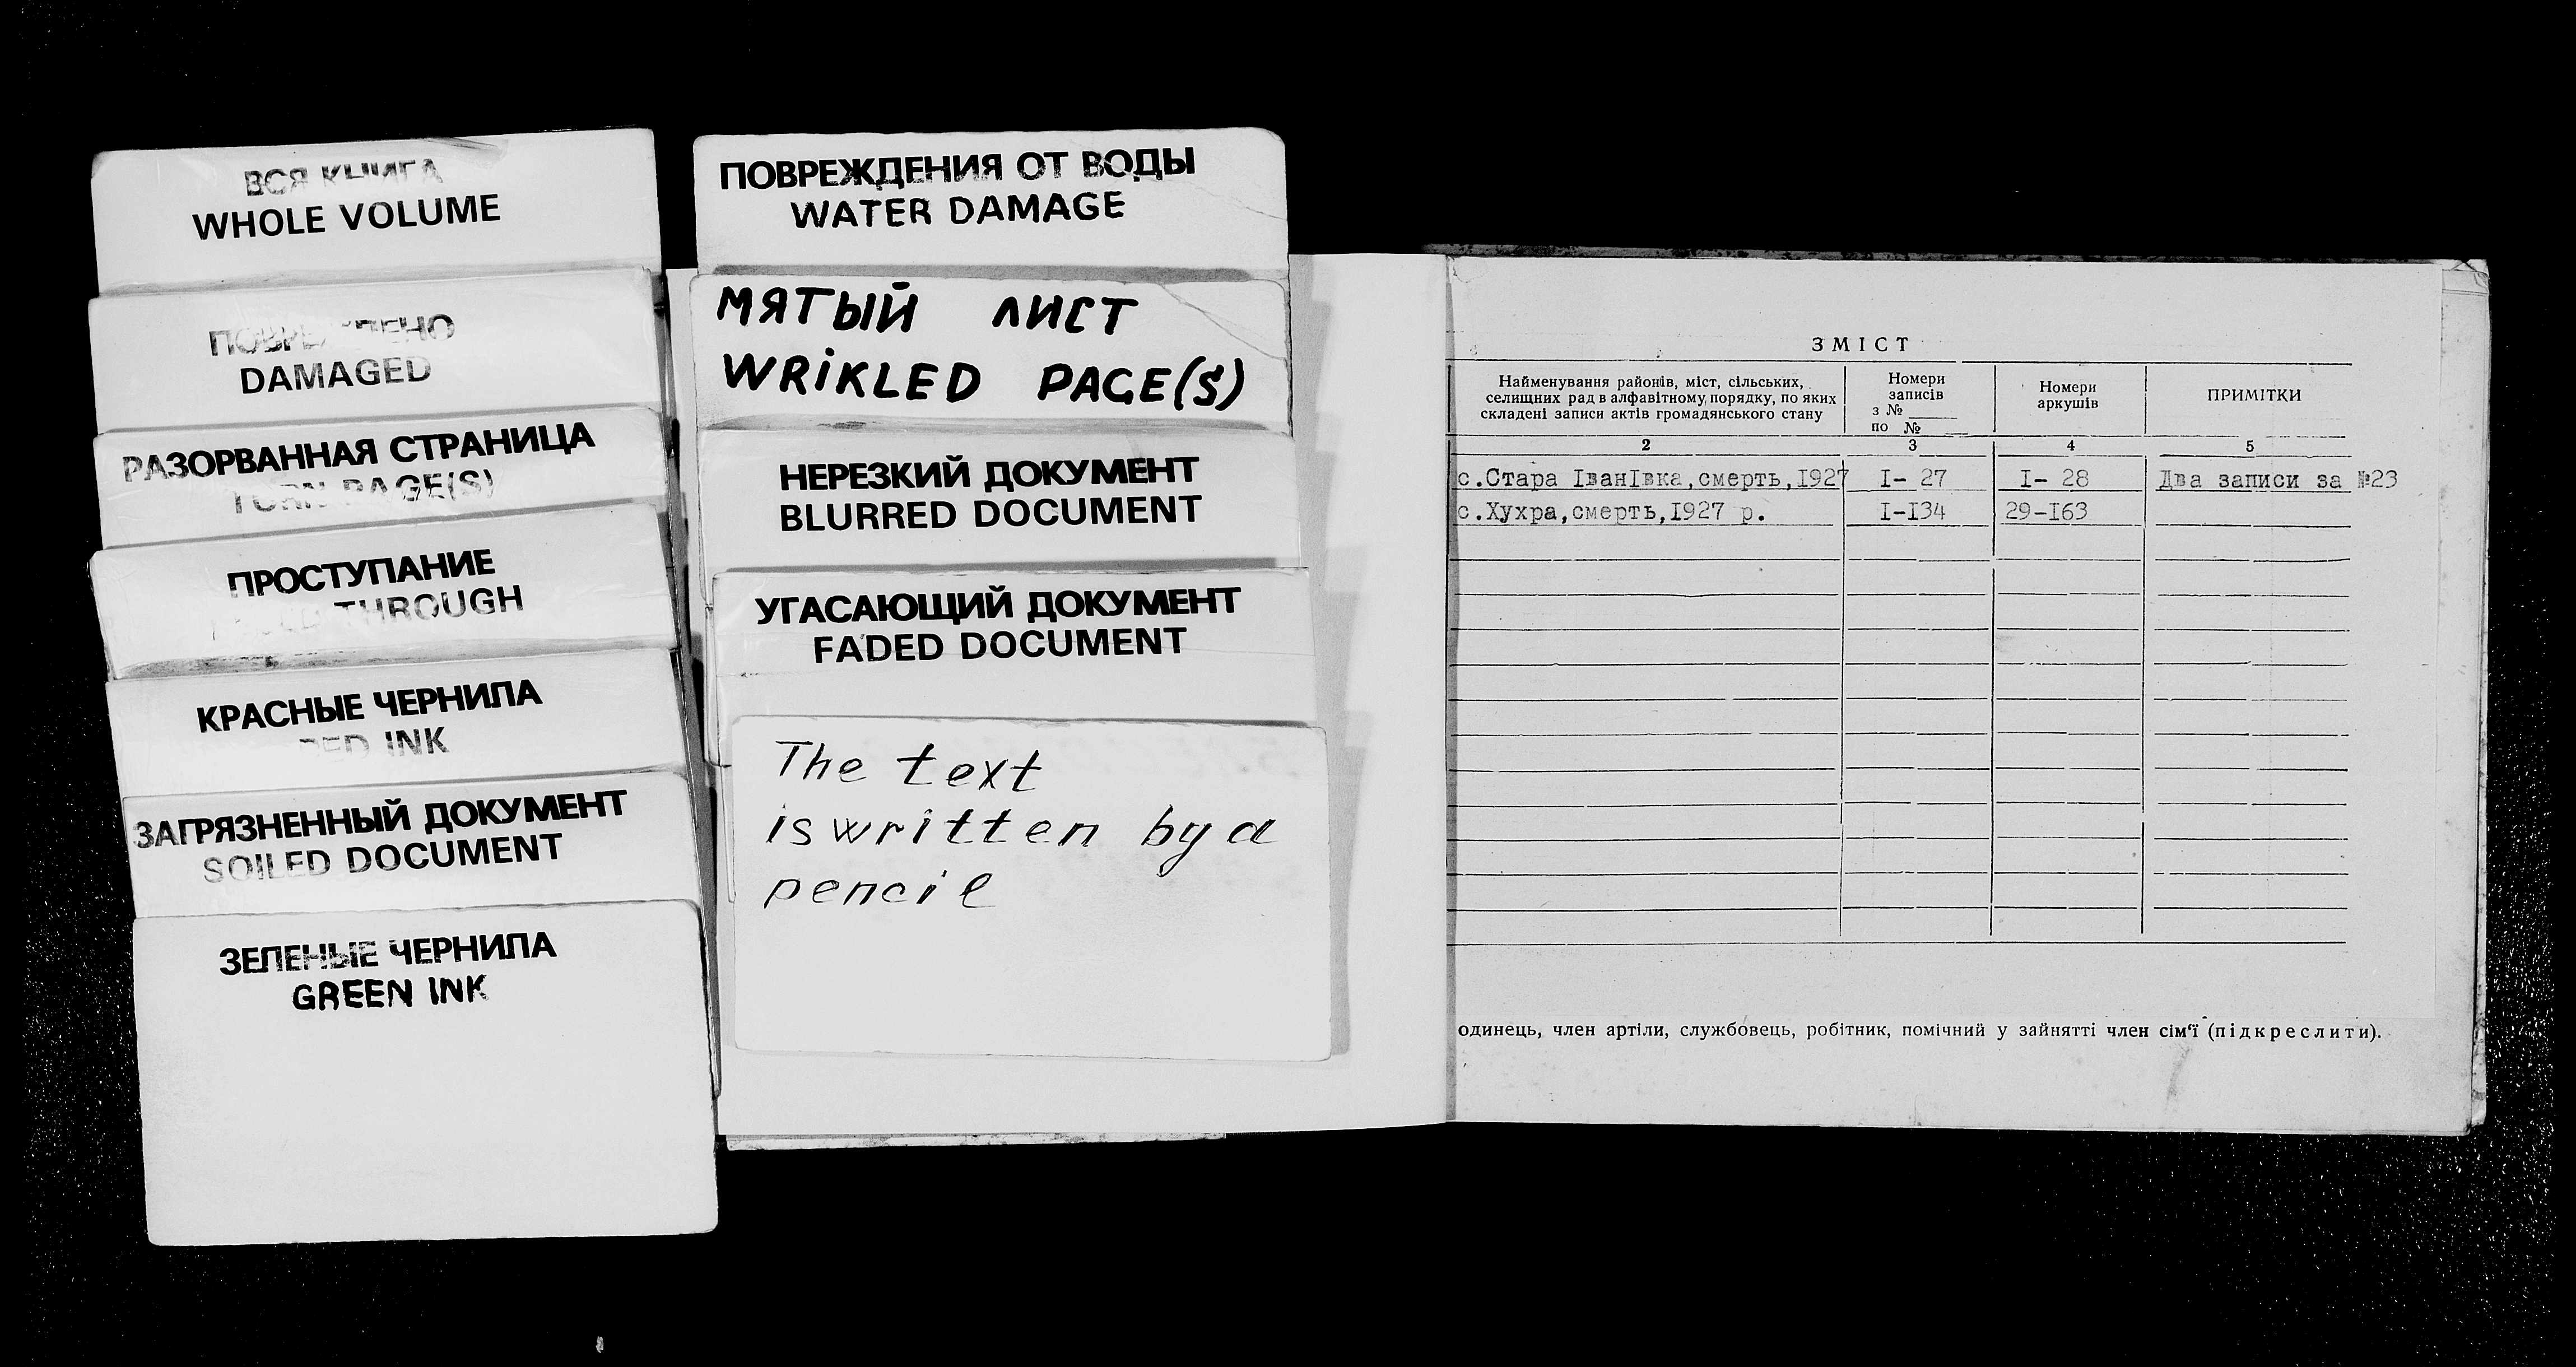 ВСЯ КНИГА
WHOLE VOLUME
ПОВРЕЖДЕНО
DAMAGED
РАЗОРВАННАЯ СТРАНИЦА
TORN PAGE(S)
ПРОСТУПАНИЕ
THROUGH
КРАСНЫЕ ЧЕРНИЛА
RED INK
ЗАГРЯЗНЕННЫЙ ДОКУМЕНТ
SOILED DOCUMENT
ЗЕЛЕНЫЕ ЧЕРНИЛА
GREEN INK
ПОВРЕЖДЕНИЯ ОТ ВОДЫ
WATER DAMAGE
МЯТЫЙ ЛИСТ
WRIKLED PAGE(S)
НЕРЕЗКИЙ ДОКУМЕНТ
BLURRED DOCUMENT
УГАСАЮЩИЙ ДОКУМЕНТ
FADED DOCUMENT
The text
is written by a
pencil
ЗМІСТ
Найменування районів, міст, сільських,
селищних рад в алфавітному порядку, по яких
складені записи актів громадянського стану
Номери
записів
з №
по №
Номери
аркушів
ПРИМІТКИ
2 3 4 5
с.Стара ІванІвка,смерть,І927 І- 27 І- 28 Два записи за №23
с.Хухра,смерть,І927 р. І-І34 29-І63
одинець, член артіли, службовець, робітник, помічний у зайнятті член сім'ї (підкреслити).